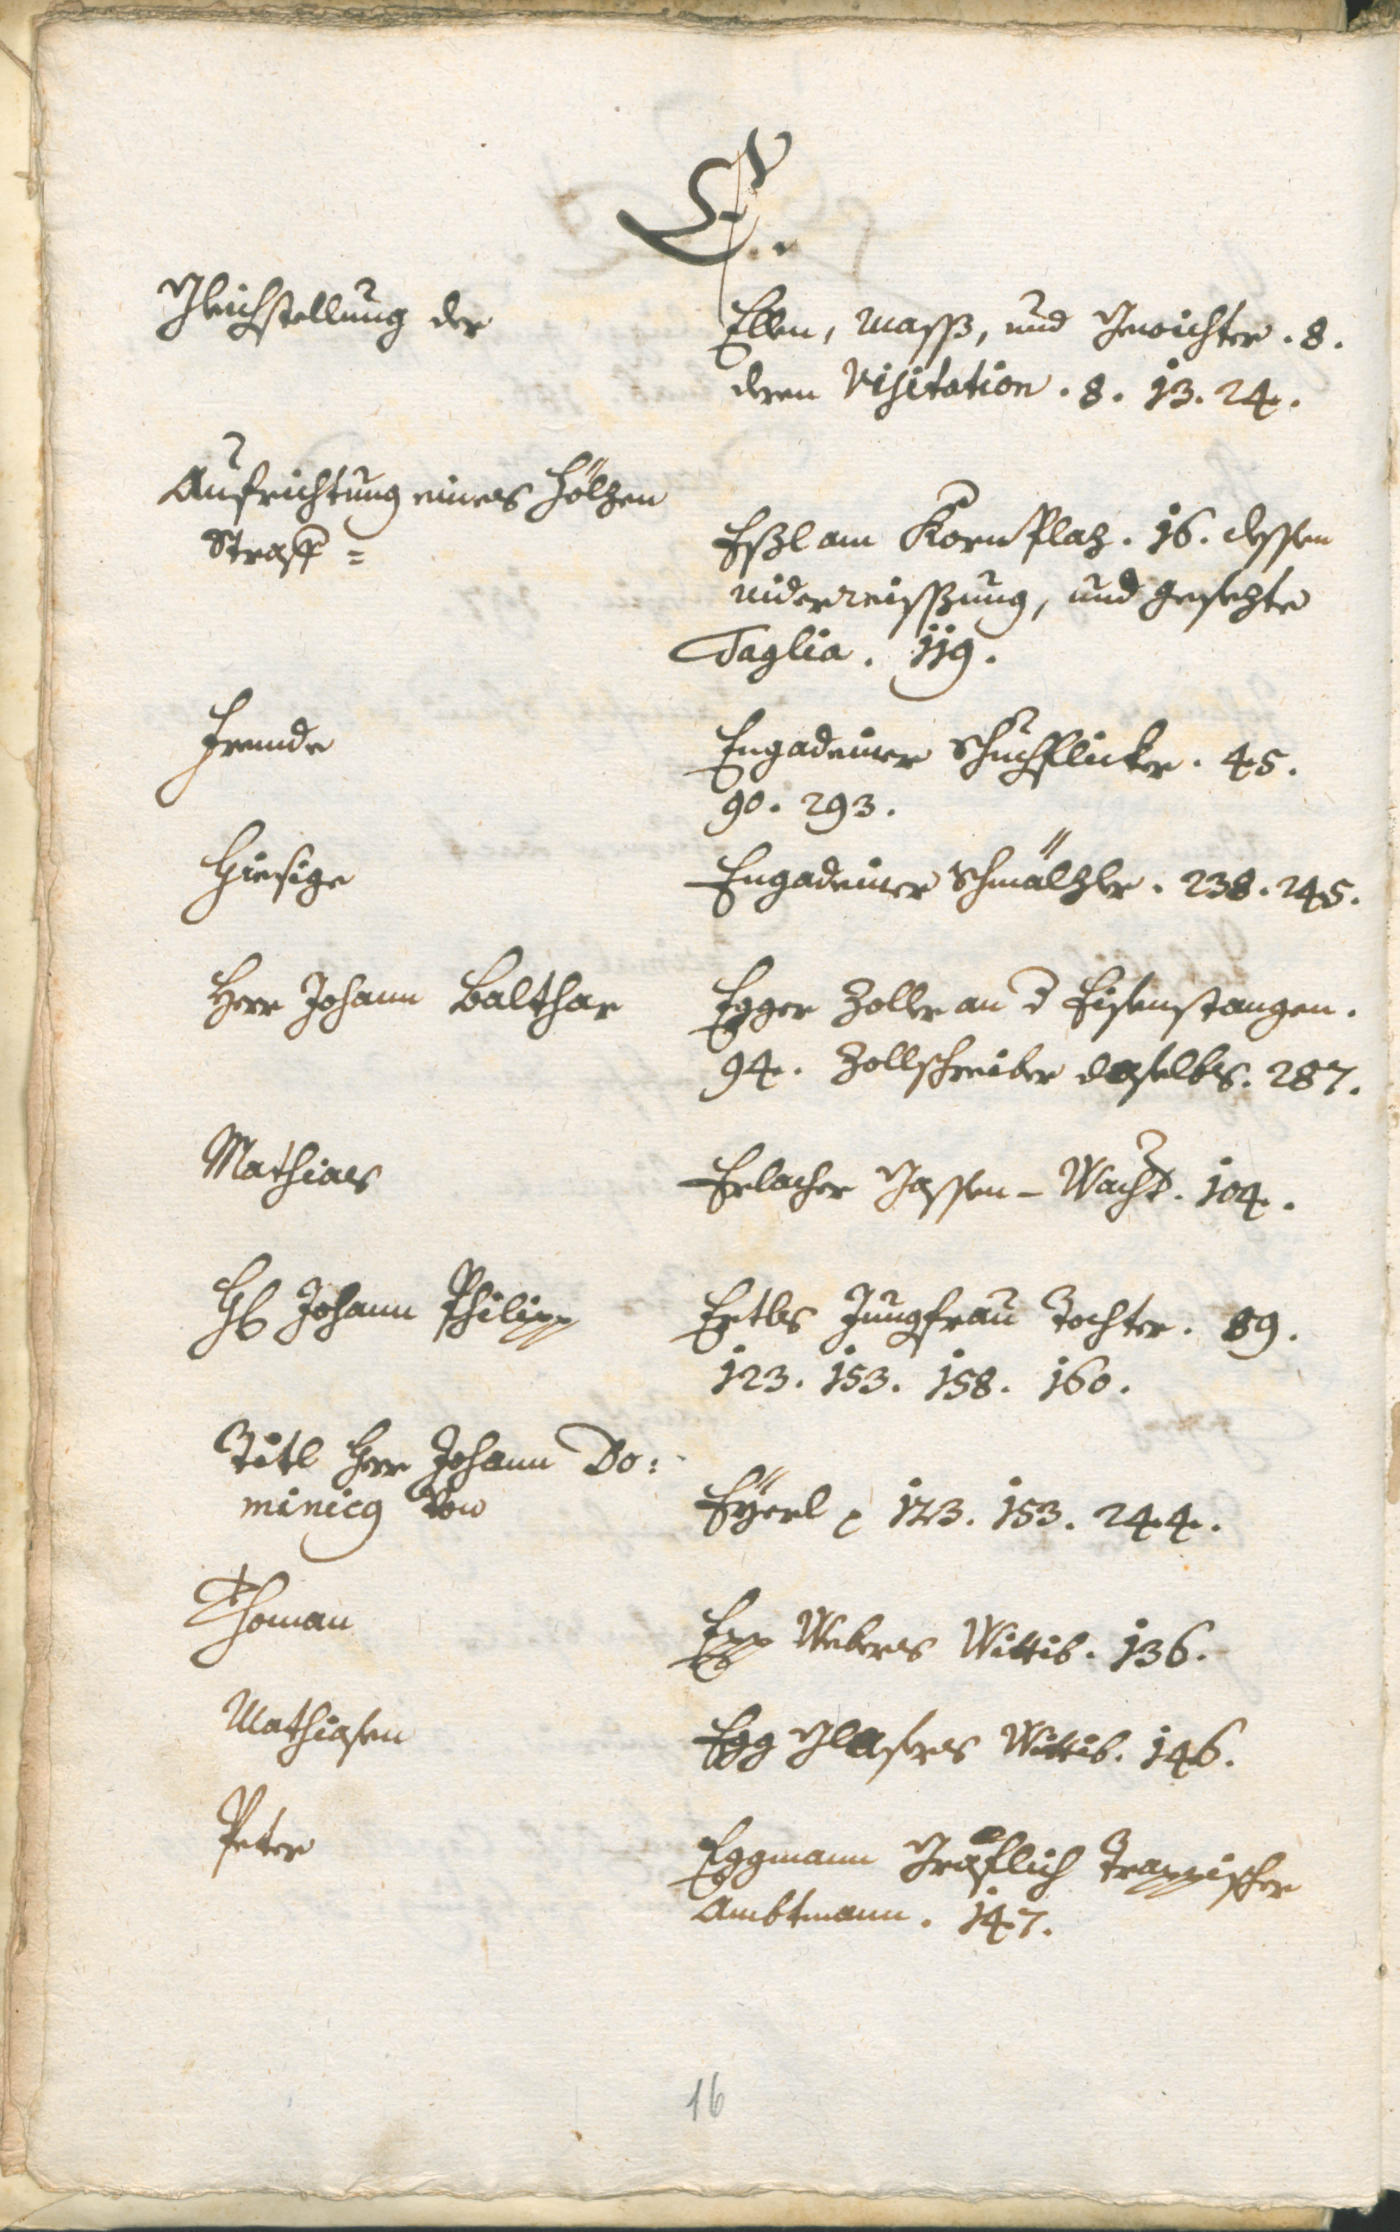 E.
Gleichstellung der
Ellen, Mass, und Gewichter. 8.
deren Visitation. 8. 13. 24.
Aufrichtung eines Hölzen
Straff=
Eßl am Kornplaz. 16. dessen
niderreissung, und gesezte
Taglia. 119.
Fremde
Engadeiner Schuchflicker. 45.
90. 293.
Hiesige
Engadeiner Schmälzler. 238. 245.
Herr Johann Balthar
Egger Zoller an d Eisenstangen.
94. Zollschreiber daselbs. 287.
Mathias
Erlacher Gassen-Wacht. 104.
H Johann Philipp
Ertls Jungfrau Tochter. 89.
123. 153. 158. 160.
Titl Herr Johann Do:
minicq von
Eÿerl 123. 153. 244.
Thoman
Epp Webers Wittib. 136.
Mathiasen
Egg Glasers Wittib. 146.
Peter
Eggmann Gräflich Trappischer
Ambtmann. 147.
16